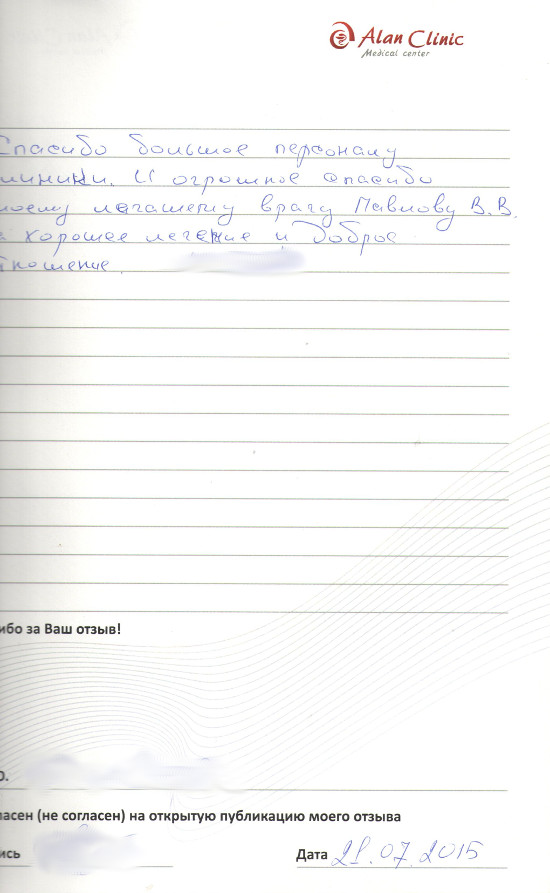 Alan Clinic
Medical center
Спасибо большое персоналу
линики. И огромное спасибо
моему лечащему врачу Павлову В.В.
а хорошее лечение и доброе
тношение.
ибо за Ваш отзыв!
О.
ласен (не согласен) на открытую публикацию моего отзыва
ись
Дата 21.07.2015